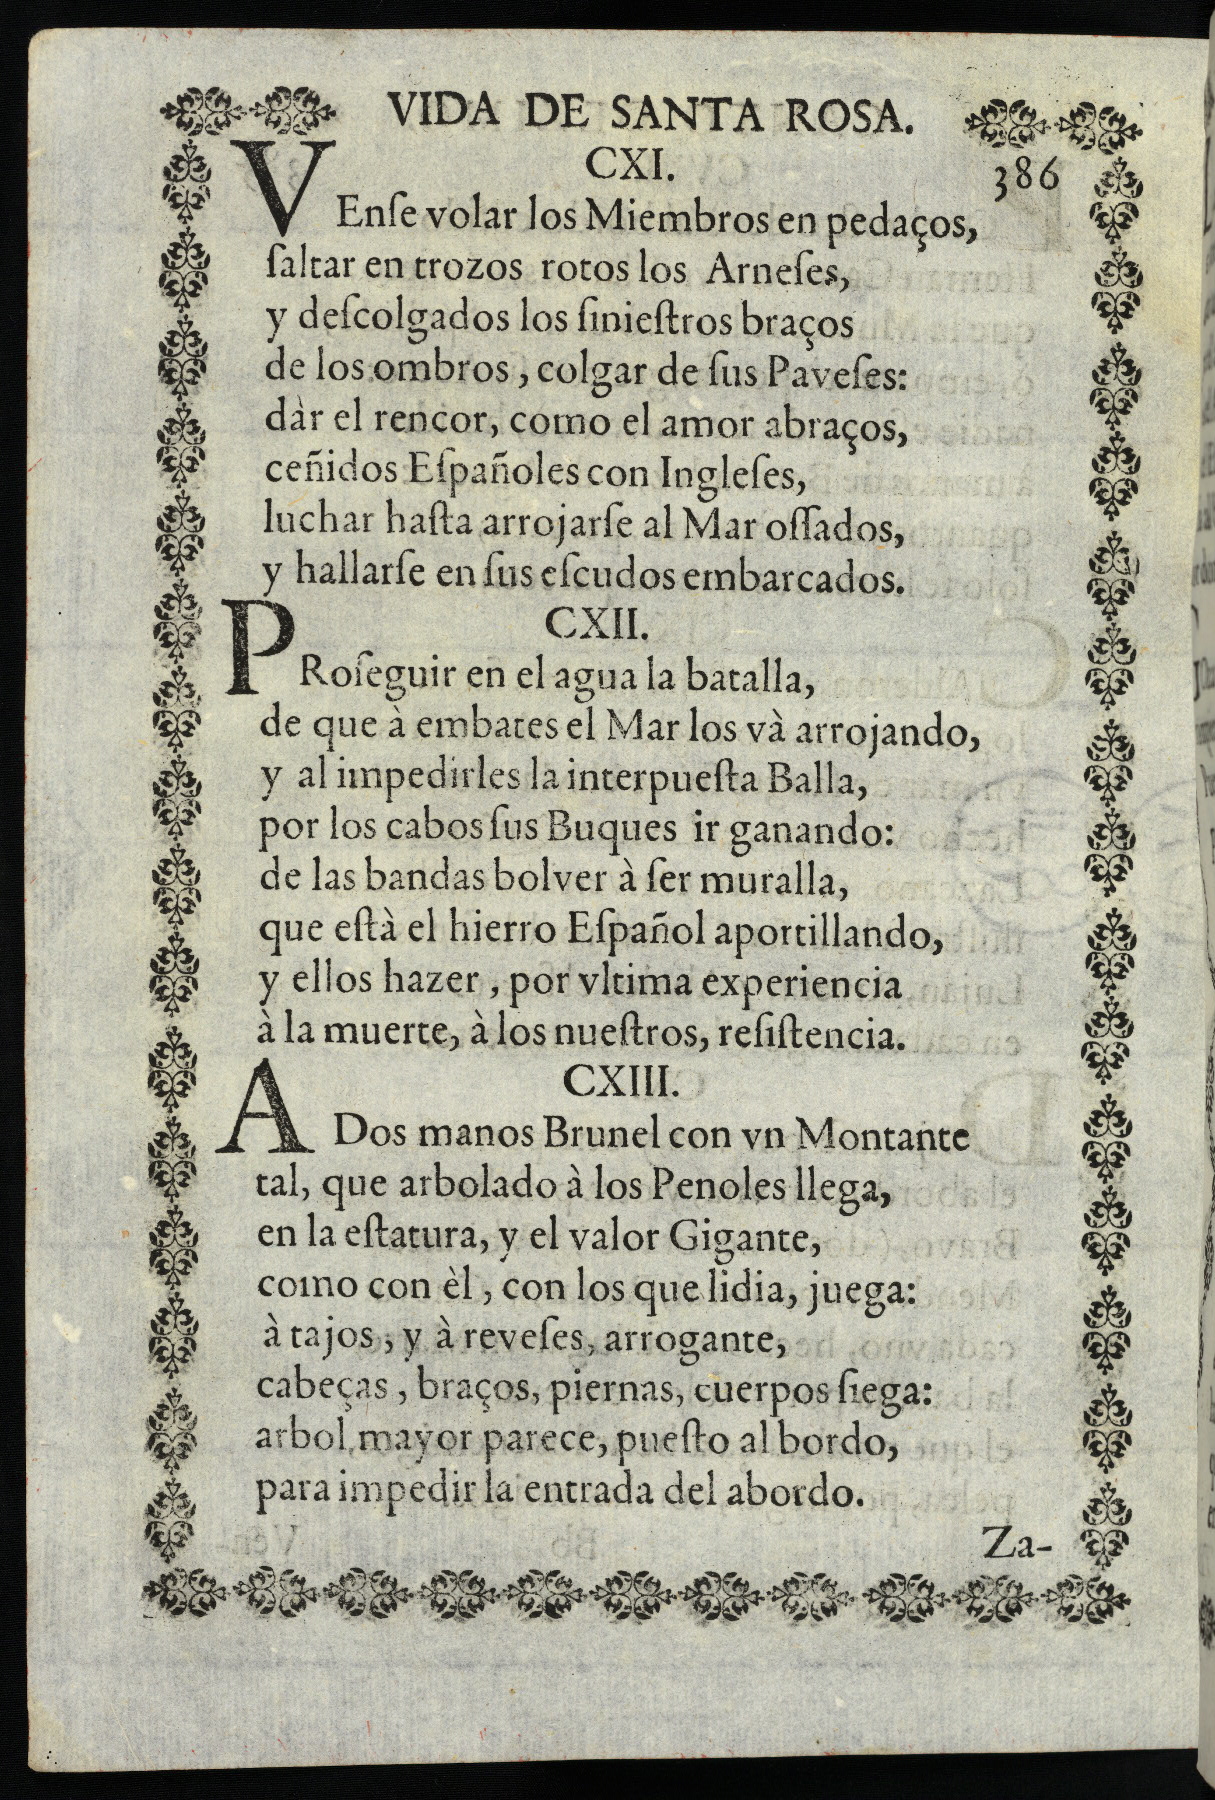 VIDA DE SANTA ROSA.
CXI.
386
VEnſe volar los Miembros en pedaços,
ſaltar en trozos rotos los Arneſes,
y deſcolgados los ſinieſtros braços
de los ombros, colgar de ſus Paveſes:
dàr el rencor, como el amor abraços,
ceñidos Eſpañoles con Ingleſes,
luchar haſta arrojarſe al Mar oſſados,
y hallarſe en ſus eſcudos embarcados.
CXII.
PRoſeguir en el agua la batalla,
de que à embates el Mar los và arrojando,
y al impedirles la interpueſta Balla,
por los cabos ſus Buques ir ganando:
de las bandas bolver à ſer muralla,
que eſtà el hierro Eſpañol aportillando,
y ellos hazer, por vltima experiencia
à la muerte, à los nueſtros, reſiſtencia.
CXIII.
A Dos manos Brunel con vn Montante
tal, que arbolado à los Penoles llega,
en la eſtatura, y el valor Gigante,
como con èl, con los que lidia, juega:
à tajos, y à reveſes, arrogante,
cabeças, braços, piernas, cuerpos ſiega:
arbol mayor parece, pueſto al bordo,
para impedir la entrada del abordo.
Za-